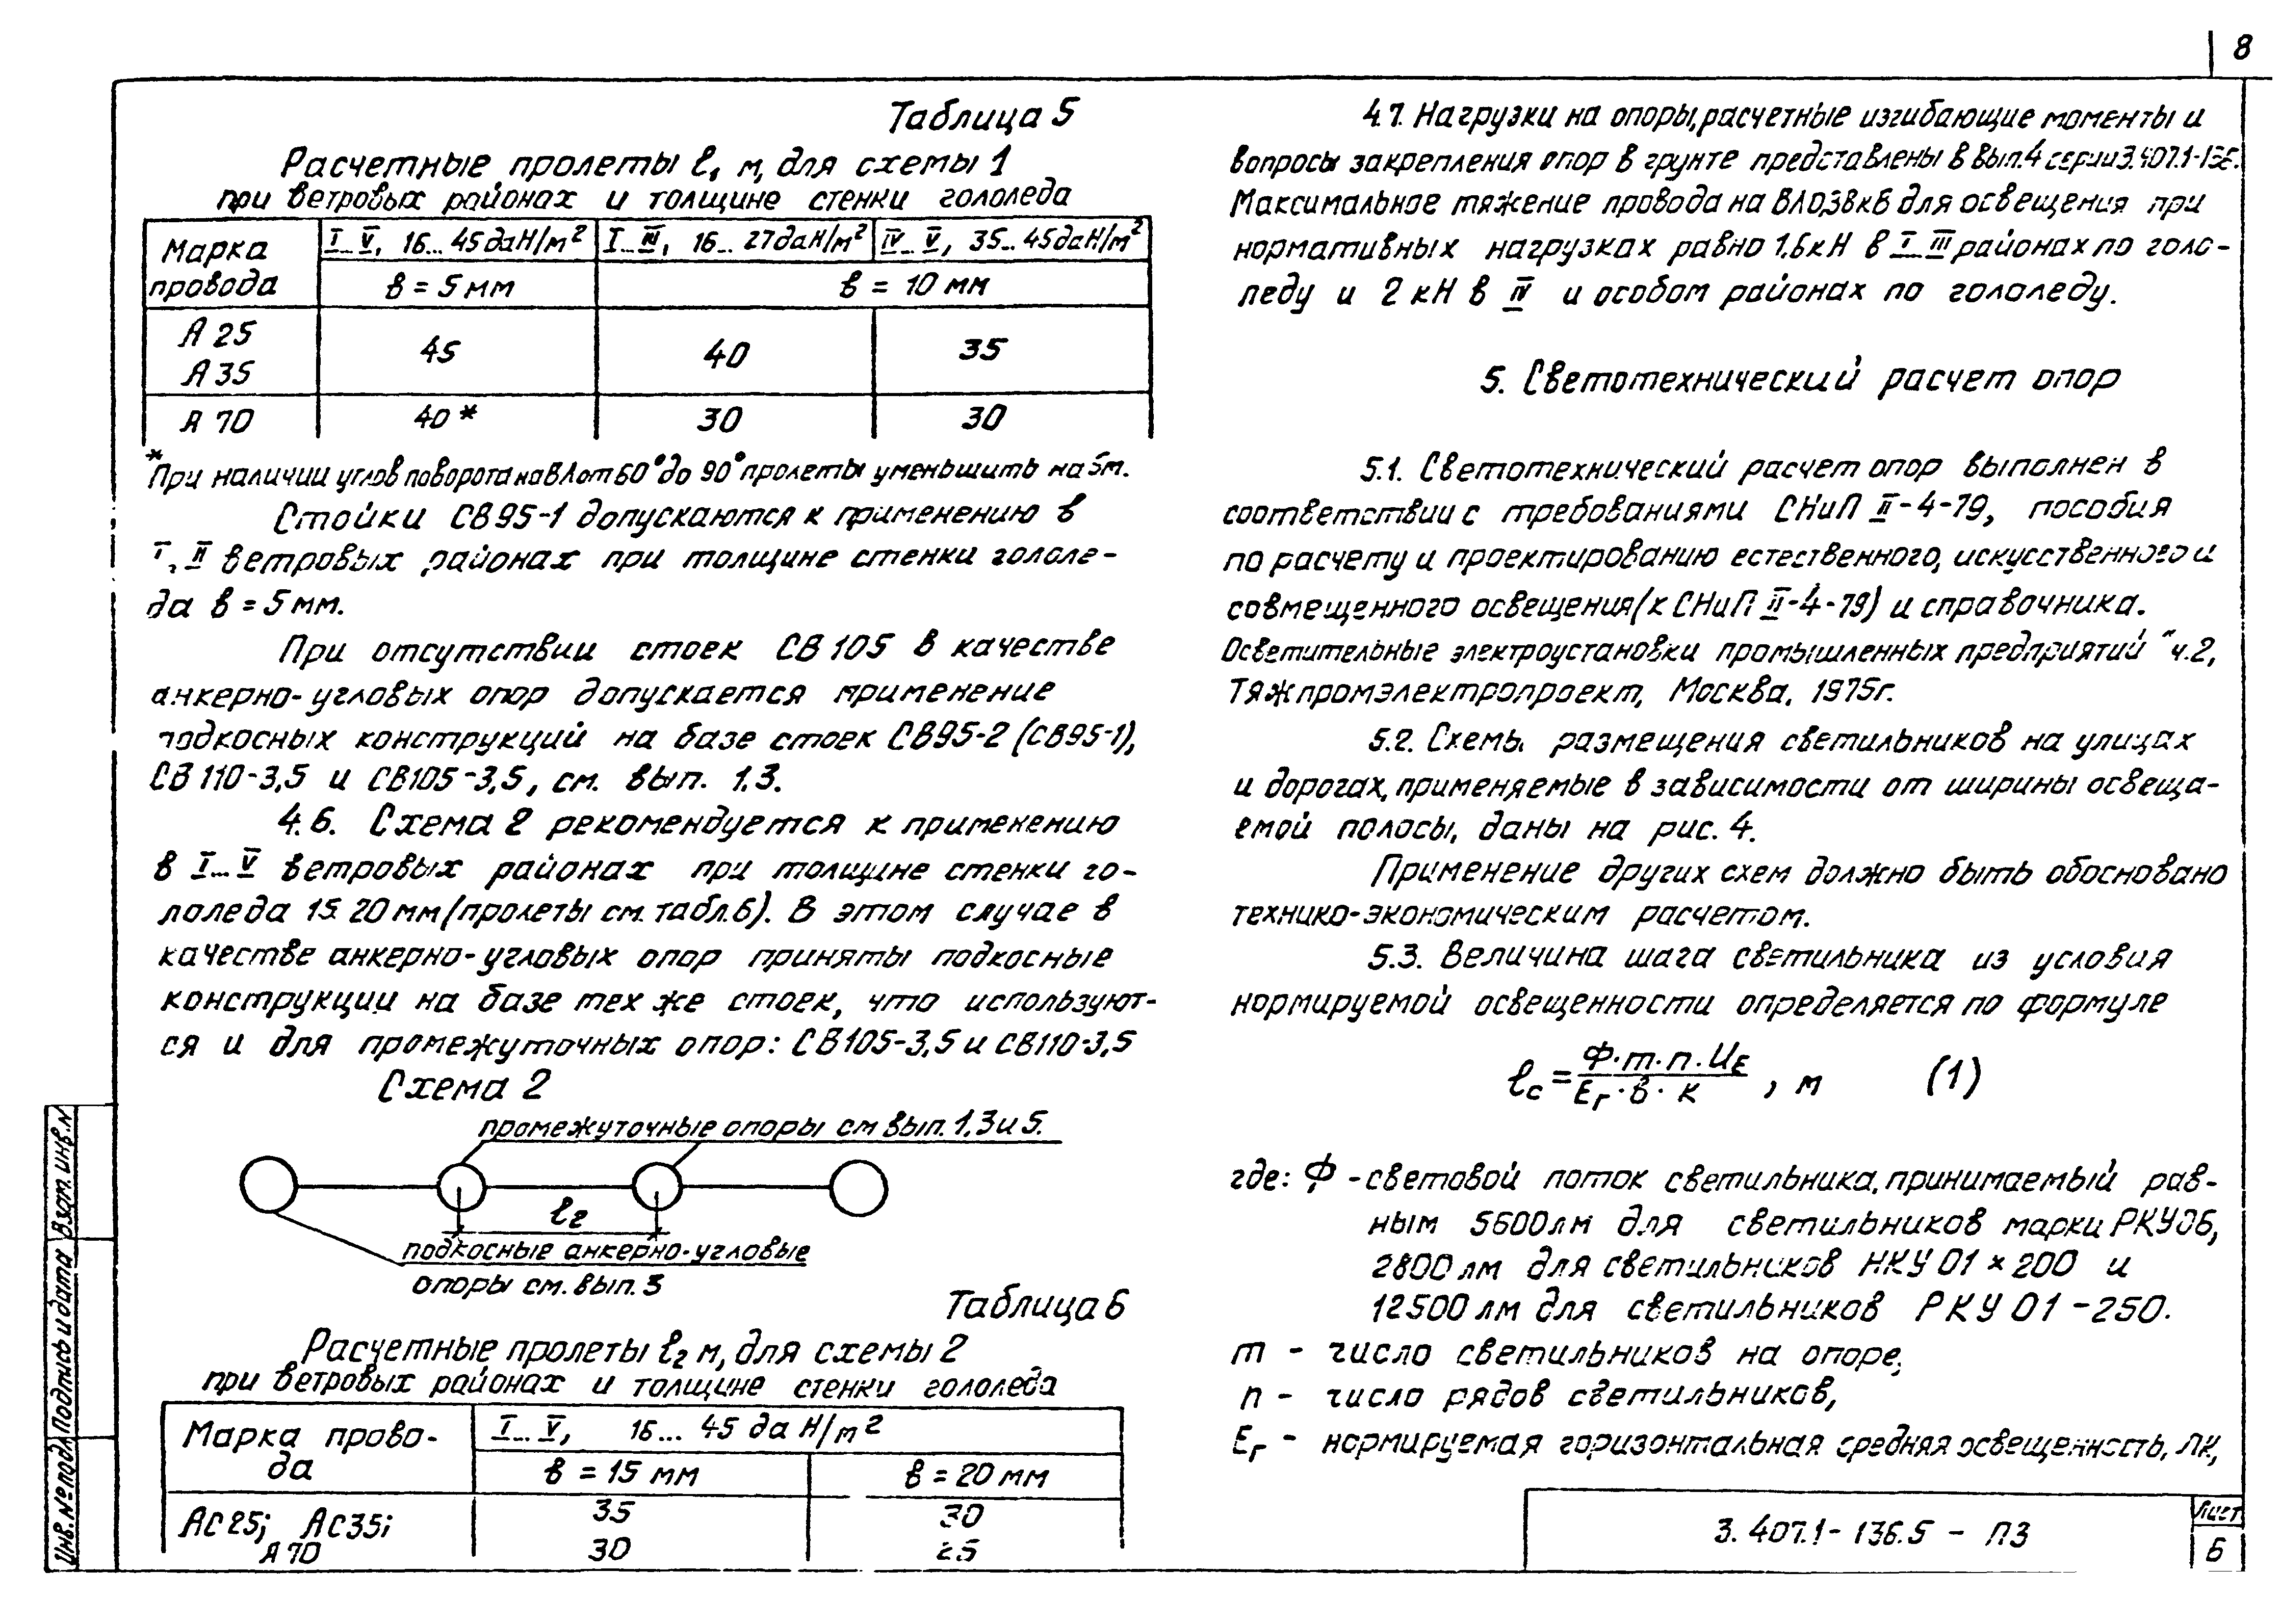 8
Таблица 5
Расчетные пролеты ℓ₁ м, для схемы 1
при ветровых районах и толщине стенки гололеда
Марка провода
I...V, 16...45 даН/м²
I...III, 16...27 даН/м²
IV...V, 35...45 даН/м²
в = 5 мм
в = 10 мм
А 25
А 35
45
40
35
А 70
40*
30
30
*При наличии углов поворота на ВЛ от 60° до 90° пролеты уменьшить на 5м.
Стойки СВ95-1 допускаются к применению в
I, II ветровых районах при толщине стенки гололе-
да в = 5 мм.
При отсутствии стоек СВ 105 в качестве
анкерно-угловых опор допускается применение
подкосных конструкций на базе стоек СВ95-2 (СВ95-1),
СВ 110-3,5 и СВ105-3,5, см. вып. 1,3.
4.6. Схема 2 рекомендуется к применению
в I...V ветровых районах при толщине стенки го-
лоледа 15. 20 мм (пролеты см. табл.6). В этом случае в
качестве анкерно-угловых опор приняты подкосные
конструкции на базе тех же стоек, что используют-
ся и для промежуточных опор: СВ105-3,5 и СВ110-3,5
Схема 2
промежуточные опоры см вып. 1,3 и 5.
ℓ₂
подкосные анкерно-угловые
опоры см. вып. 3
Таблица 6
Расчетные пролеты ℓ₂ м, для схемы 2
при ветровых районах и толщине стенки гололеда
Марка прово-
да
I...V, 16... 45 даН/м²
в = 15 мм
в = 20 мм
АС25; АС35;
35
30
А 70
30
25
4.7. Нагрузки на опоры, расчетные изгибающие моменты и
вопросы закрепления опор в грунте представлены в вып.4 серии 3.407.1-136.
Максимальное тяжение провода на ВЛ 0,38 кВ для освещения при
нормативных нагрузках равно 1,6 кН в I...III районах по голо-
леду и 2 кН в IV и особом районах по гололеду.
5. Светотехнический расчет опор
5.1. Светотехнический расчет опор выполнен в
соответствии с требованиями СНиП II-4-79, пособия
по расчету и проектированию естественного, искусственного и
совмещенного освещения (к СНиП II-4-79) и справочника.
Осветительные электроустановки промышленных предприятий" ч.2,
Тяжпромэлектропроект, Москва, 1975г.
5.2. Схемы размещения светильников на улицах
и дорогах, применяемые в зависимости от ширины освеща-
емой полосы, даны на рис. 4.
Применение других схем должно быть обосновано
технико-экономическим расчетом.
5.3. Величина шага светильника из условия
нормируемой освещенности определяется по формуле
ℓс = Ф·т·п·ИЕ / Ег·в·к , м (1)
где: Ф - световой поток светильника, принимаемый рав-
ным 5600 лм для светильников марки РКУ06,
2800 лм для светильников НКУ 01×200 и
12500 лм для светильников РКУ 01-250.
т - число светильников на опоре,
п - число рядов светильников,
Ег - нормируемая горизонтальная средняя освещенность, лк,
3.407.1-136.5 - ПЗ
Лист
6
Инв. № подл.
Подпись и дата
Взам. инв. N